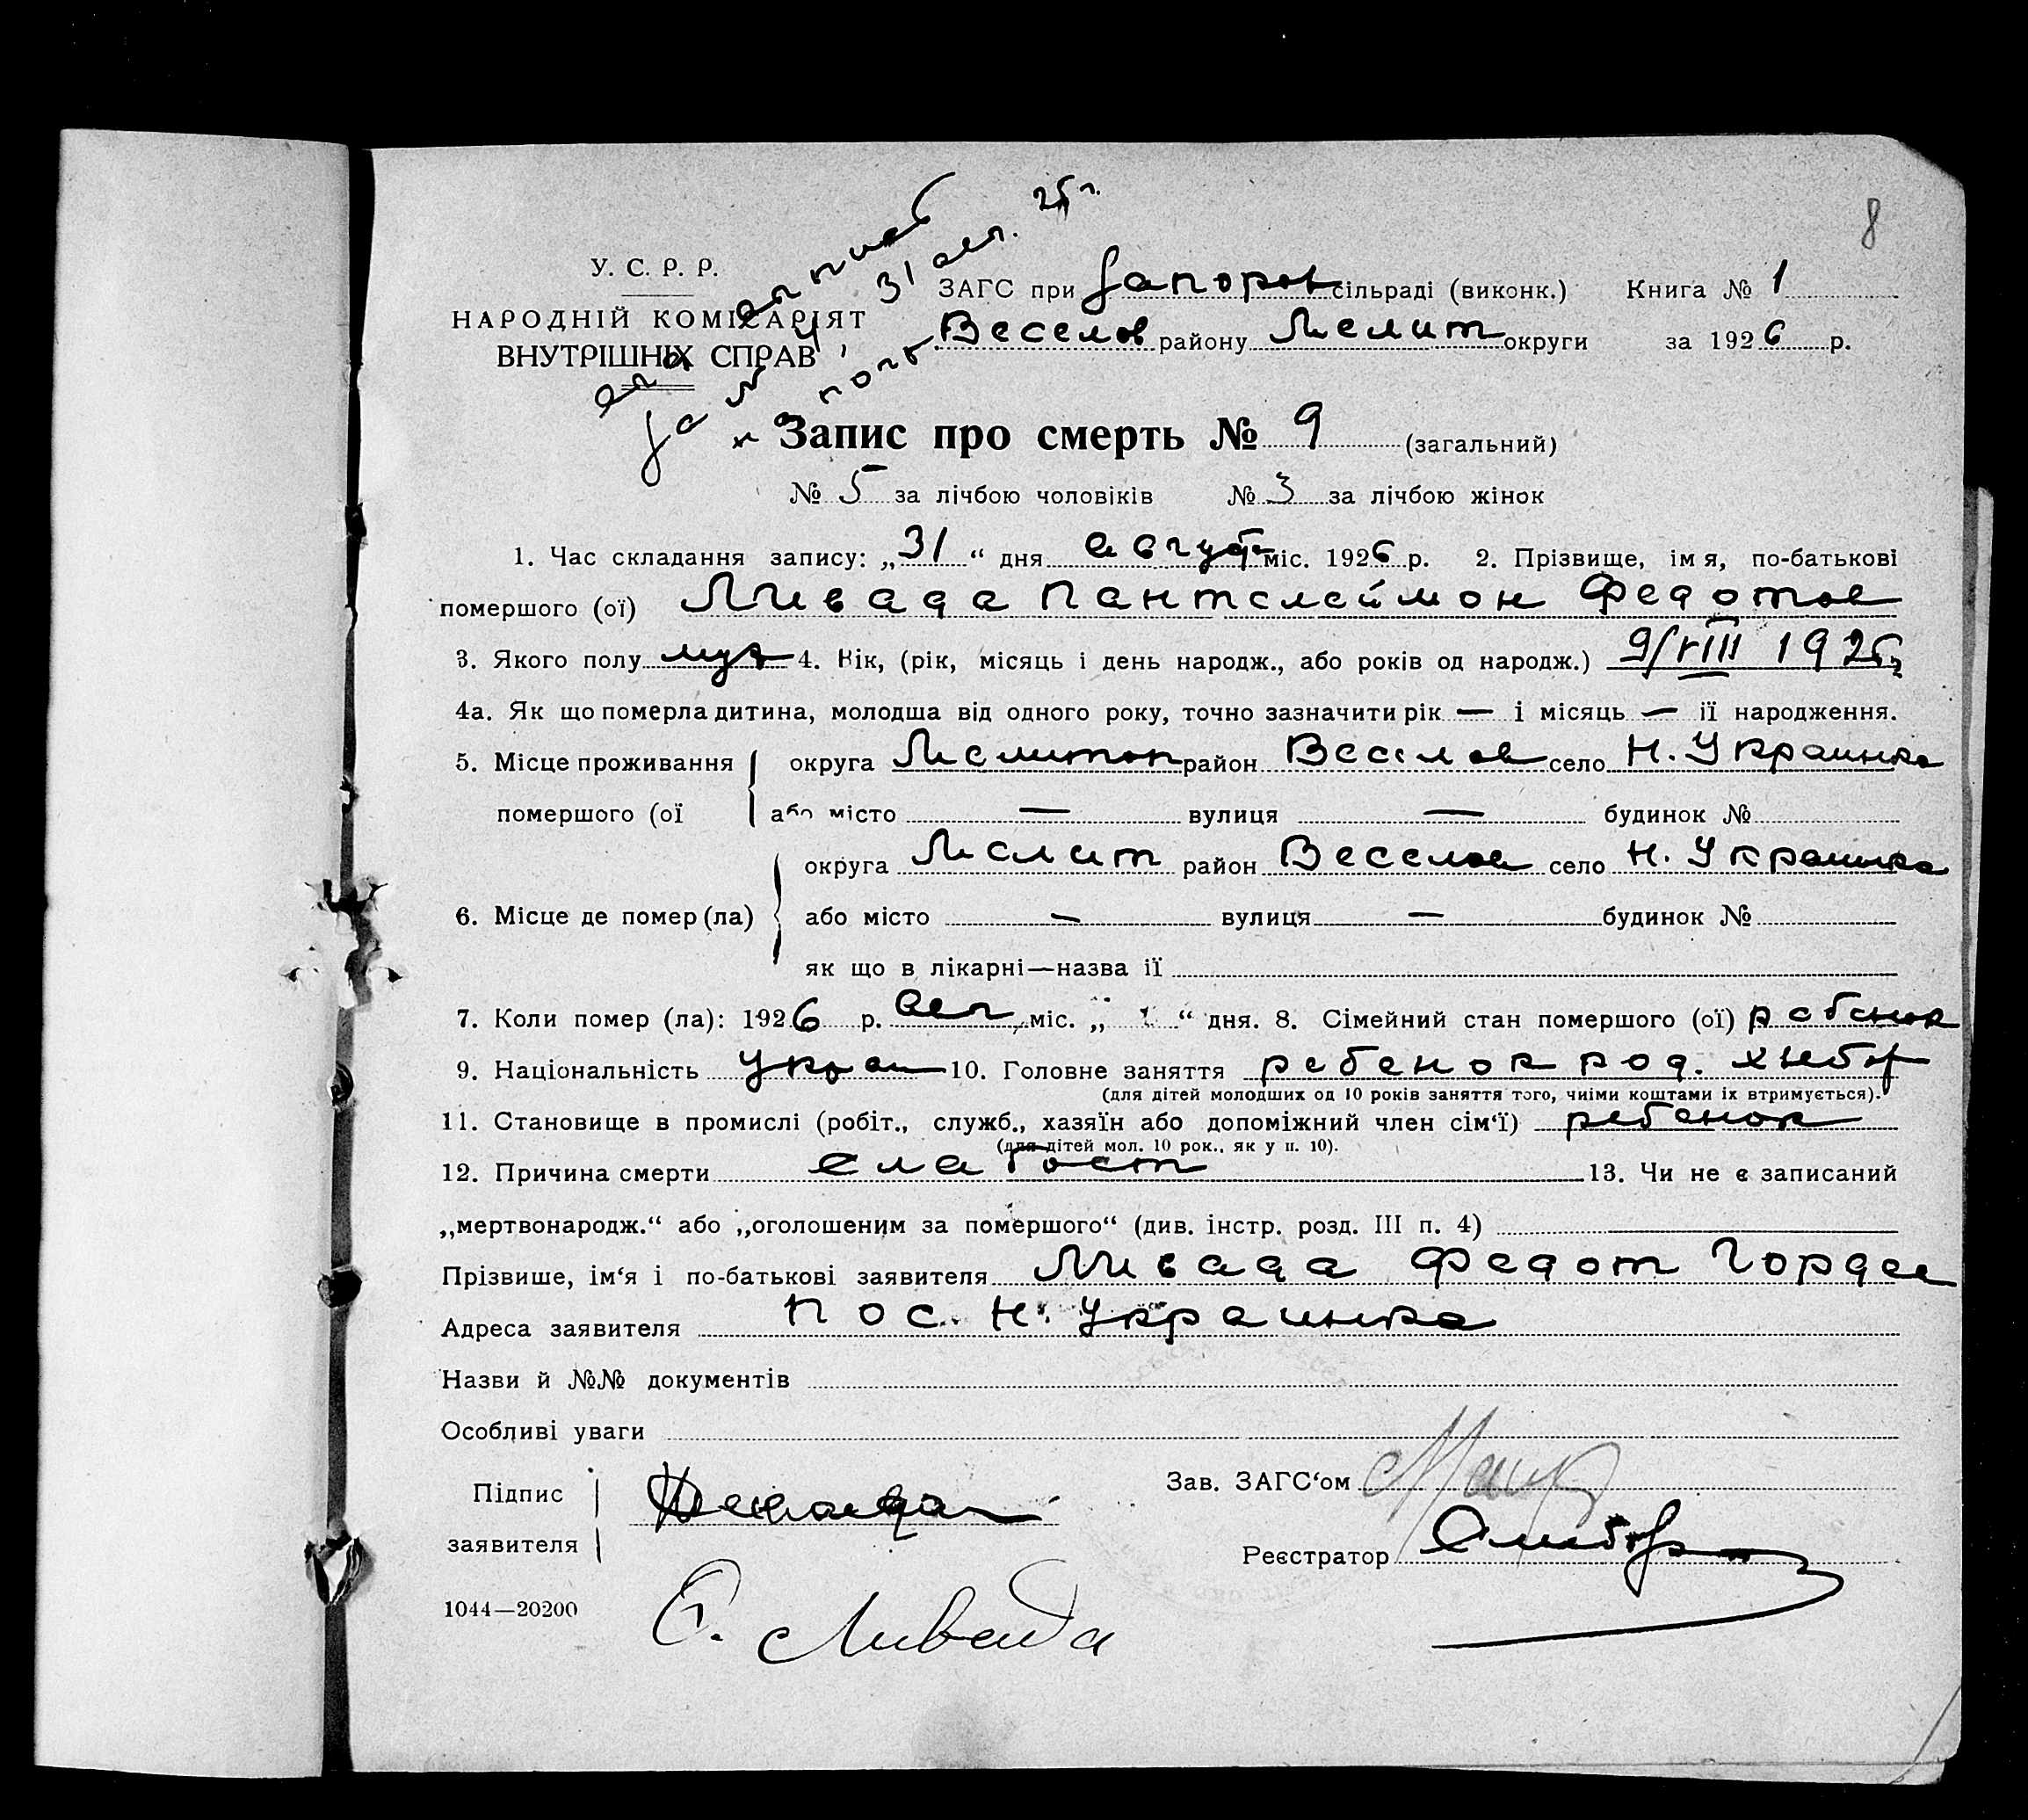 8
У. С. Р. Р.
НАРОДНІЙ КОМІСАРІЯТ
ВНУТРІШНІХ СПРАВ
31 авг. 25 г.
ЗАГС при Запоров сільраді (виконк.) Книга № 1
Веселов району Мелит округи за 1926 р.
Запис про смерть № 9 (загальний)
№ 5 за лічбою чоловіків № 3 за лічбою жінок
1. Час складання запису: „31“ дня августа міс. 1926 р. 2. Прізвище, ім я, по-батькові
помершого (ої) Ливада Пантелеймон Федотов
3. Якого полу муж 4. Вік, (рік, місяць і день народж., або років од народж.) 9/VIII 1925
4а. Як що померла дитина, молодша від одного року, точно зазначити рік — і місяць — її народження.
5. Місце проживання округа Мелитоп район Веселов село Н. Украинка
помершого (ої або місто — вулиця — будинок №
округа Мелит район Веселов село Н. Украинка
6. Місце де помер (ла) або місто — вулиця — будинок №
як що в лікарні—назва її
7. Коли помер (ла): 1926 р. авг міс. „ “ дня. 8. Сімейний стан помершого (ої) ребенок
9. Національність украин 10. Головне заняття ребенок род. хлебор
(для дітей молодших од 10 років заняття того, чиїми коштами їх втримується).
11. Становище в промислі (робіт., служб., хазяїн або допоміжний член сім‘ї) ребенок
(для дітей мол. 10 рок., як у п. 10).
12. Причина смерти слабост 13. Чи не є записаний
„мертвонародж.“ або „оголошеним за помершого“ (див. інстр. розд. III п. 4)
Прізвише, ім‘я і по-батькові заявителя Ливада Федот Горде
Адреса заявителя пос. Н. Украинка
Назви й №№ документів
Особливі уваги
Підпис Зав. ЗАГС‘ом
заявителя Реєстратор
1044—20200 Ливада